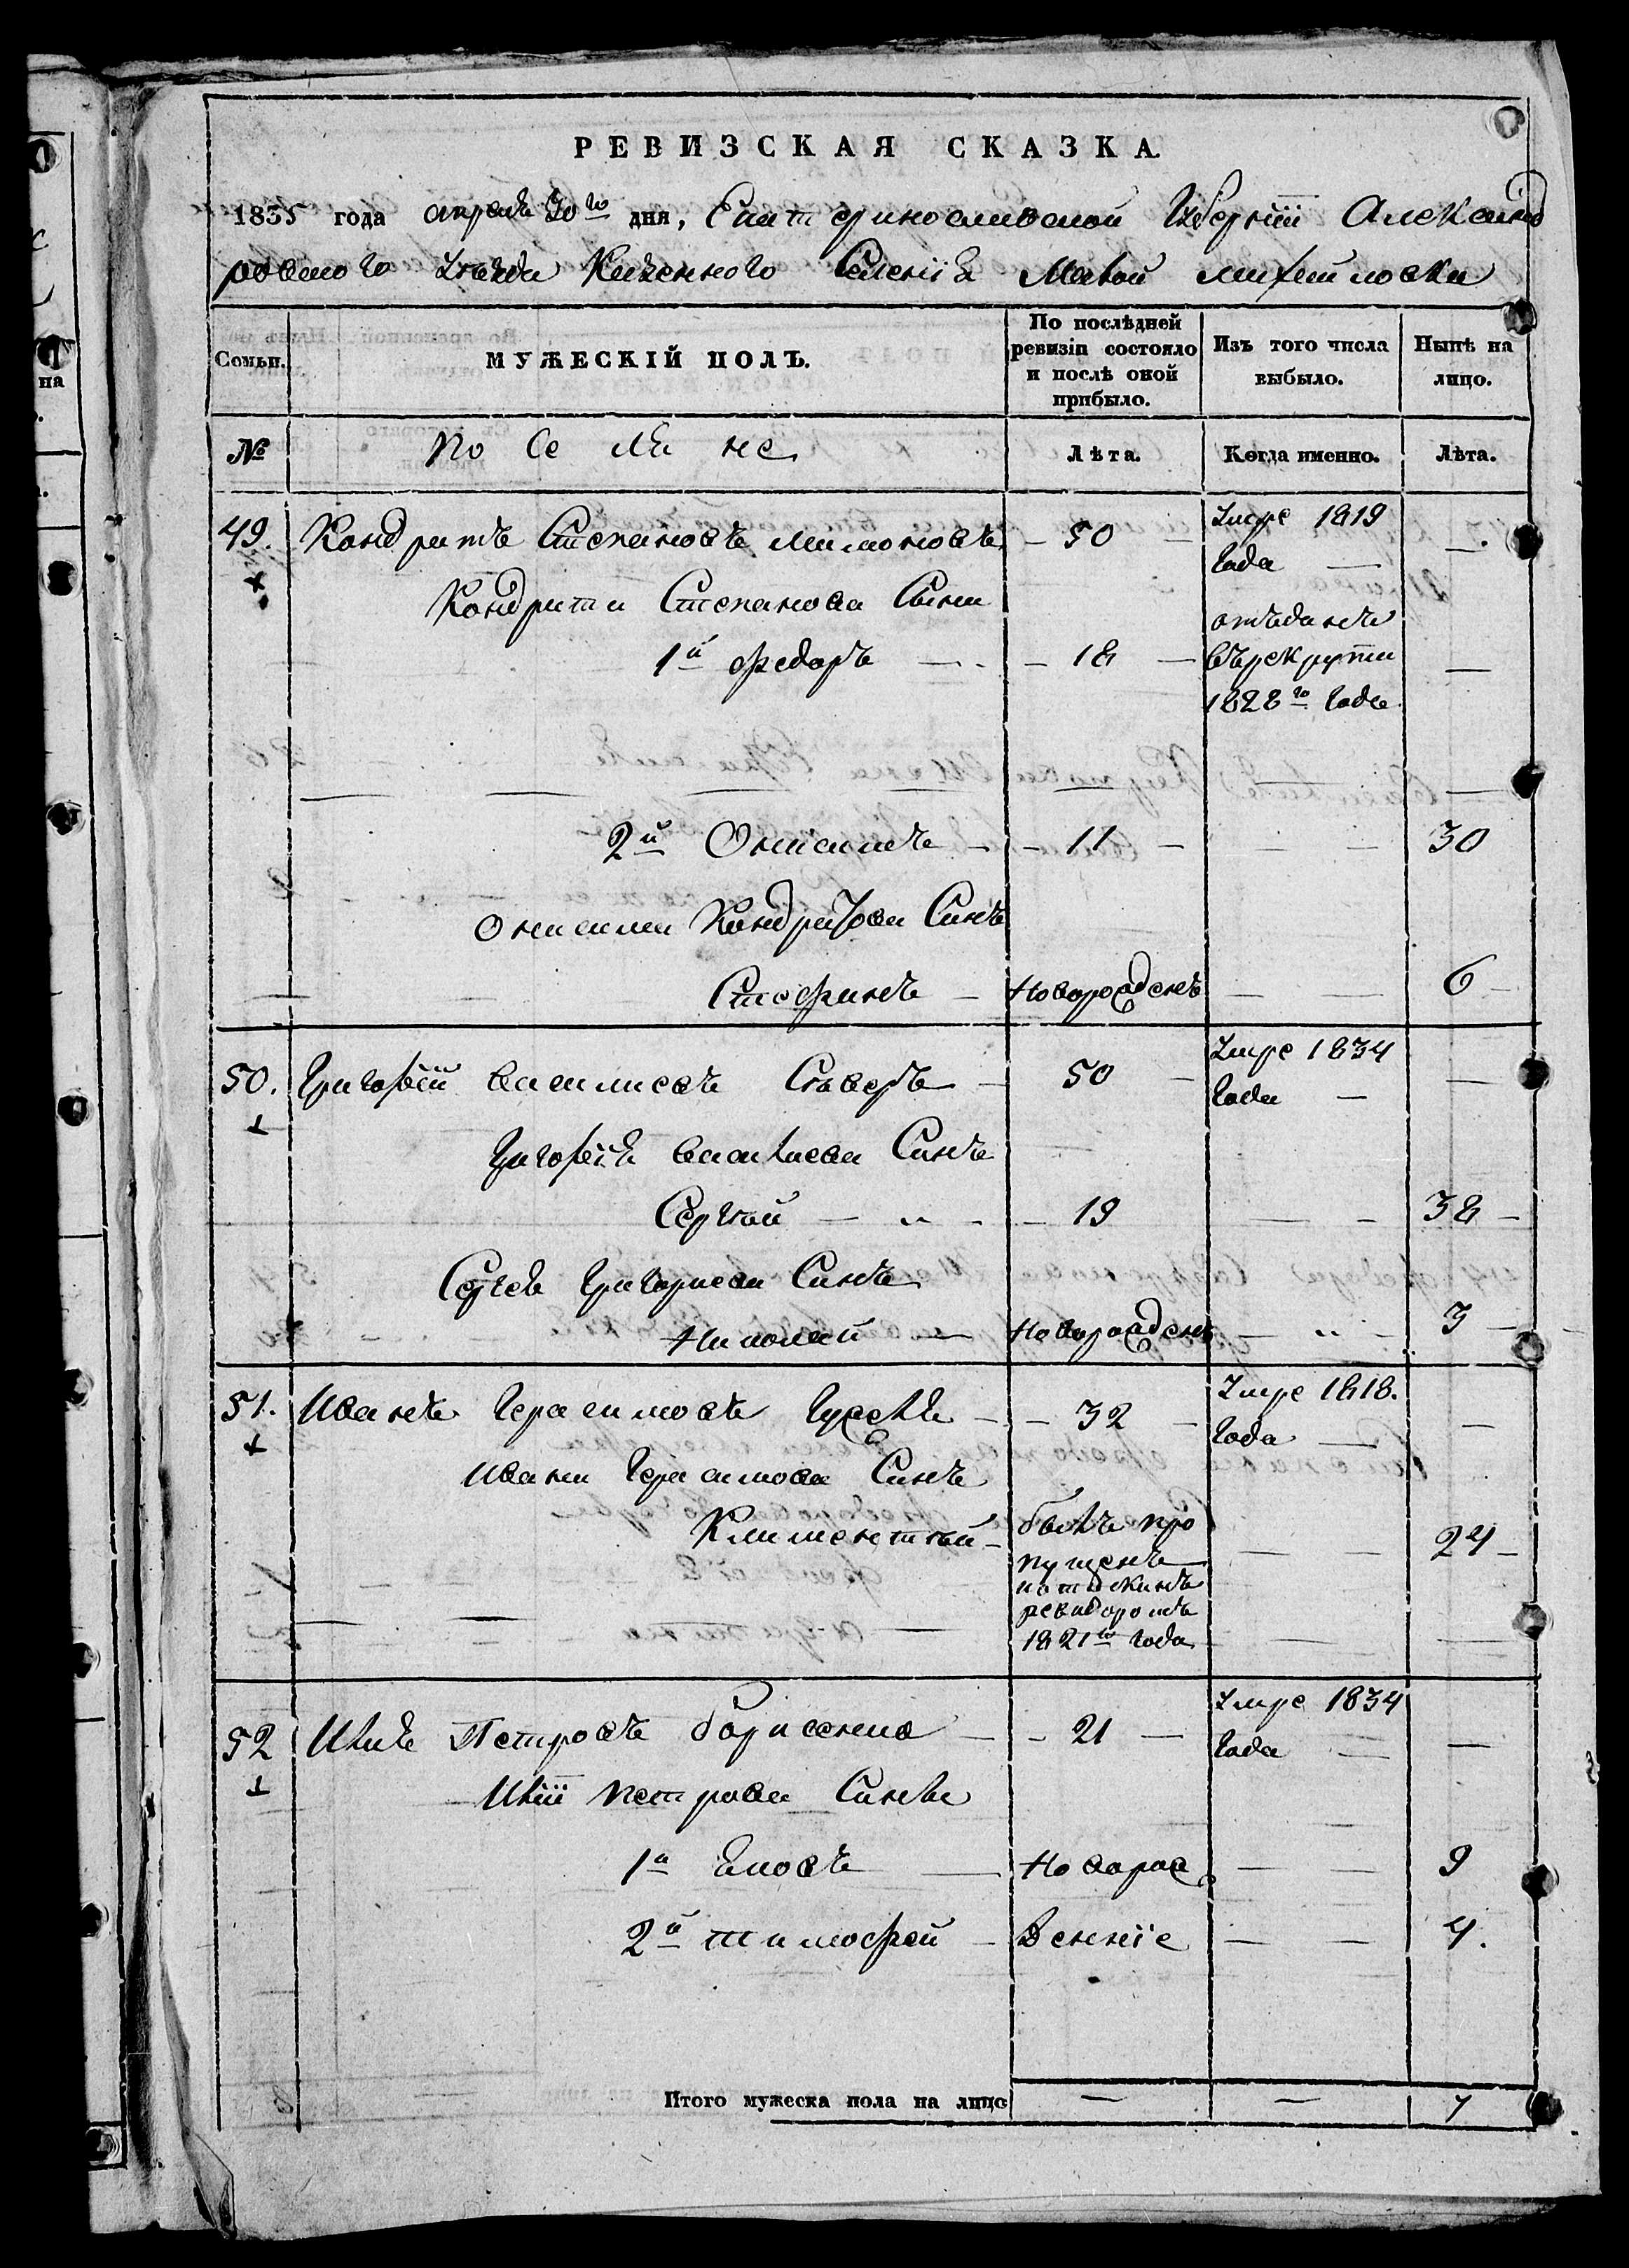 РЕВИЗСКАЯ СКАЗКА.
1835 года апреля 30го дня, Екатеринославской Губернiи Александ
ровского Уезда Казенного Селенiя Малой Михайловки
Семьи. МУЖЕСКIЙ ПОЛЪ. По послѣдней ревизiи состояло и послѣ оной прибыло. Изъ того числа выбыло. Нынѣ на лицо.
№ поселяне Лѣта. Когда именно. Лѣта.
49. Кондратъ Степановъ Мамоновъ 50 Умре 1819 Года —
Кондрата Степанова Сыны
1й Федоръ 18 отъданъ въ рекруты 1828го Года —
2й Онисимъ 11 — 30
Онисима Кондратова Синъ
Стефанъ Новорожденъ — 6
50. Григорiй Василиевъ 50 Умре 1834 Года —
Григорiя Василиева Синъ
Сергѣй 19 — 38
Сергея Григориева Синъ
Николай Новорожденъ — 3
51. Иванъ Герасимовъ 32 Умре 1818. Года —
Ивана Герасимова Синъ
Климентiй былъ пропущенъ ревизоромъ 1821го Года — 24
52 Илья Петровъ Борисенко 21 Умре 1834 Года —
Илiи Петрова Сины
1й Яковъ Новорож — 9
2й Тимофей денніе — 4.
Итого мужеска пола на лицо — — 7